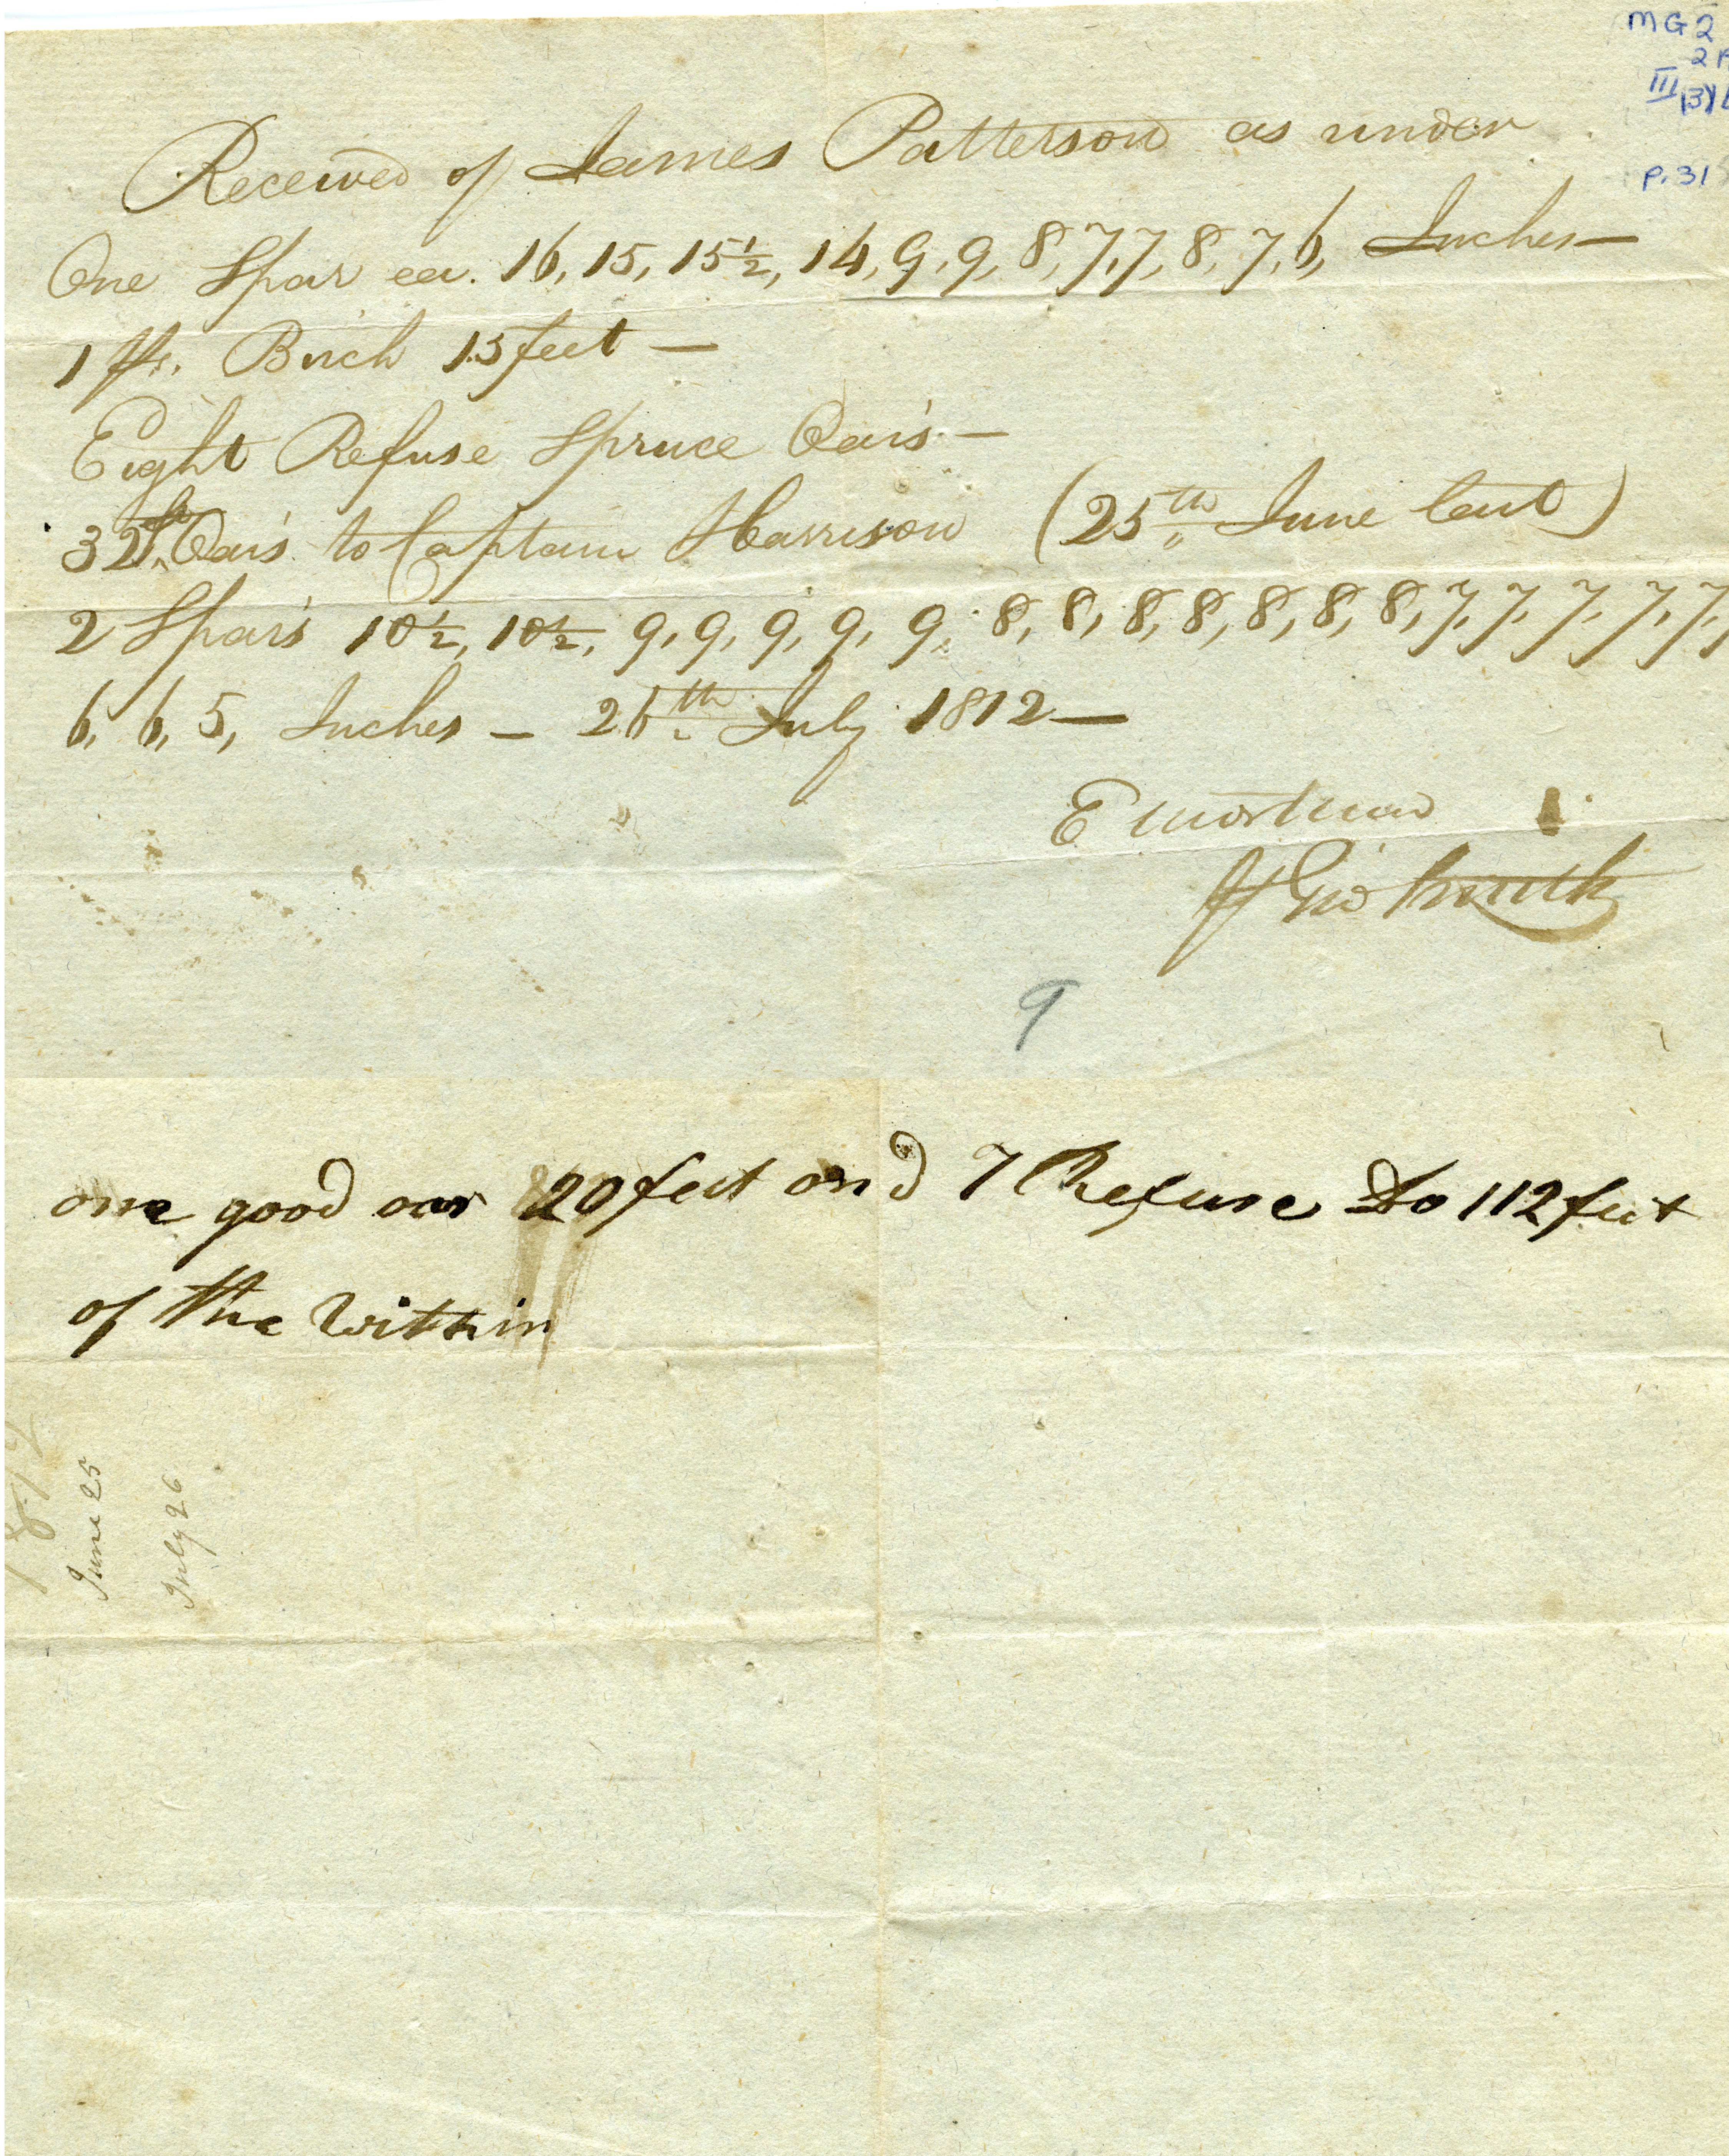 MG 2
2
III
p. 31
Received of James Patterson as under
One Spar ea. 16, 15, 15½, 14, 9, 9, 8, 7, 7, 8, 7, 6, Inches —
1 ps. Birch 15 feet —
Eight Refuse Spruce Oars —
32 Oars to Captain Harrison (25th June last)
2 Spars 10½, 10½, 9, 9, 9, 9, 9, 8, 8, 8, 8, 8, 8, 8, 7, 7, 7, 7, 7,
6, 6, 5, Inches — 26th July 1812 —
E Mortimer
Smith
9
one good oar 20 feet and 7 Refuse Do 112 feet
of the within
June 25
July 26